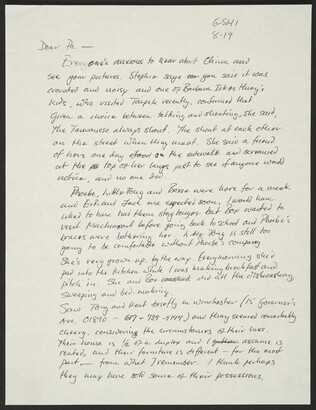 GSH1
8-19
Dear Pa —
Everyone's anxious to hear about China and
see your pictures. Stephen says you said it was
crowded and noisy and one of Barbara
kids, who visited Taipeh recently, confirmed that
Given a choice between talking and shouting, she said,
the Taiwanese always shout. The shout at each other
on the street when they meet. She said a friend
of hers one day stood on the sidewalk and screamed
at the top of her lungs just to see if anyone would
notice, and no one did.
Phoebe, little Tony and Boxie were here for a week
and Eif and Jack are expected soon, I would have
liked to have had them stay longer but Box wanted to
visit Machiasport before going back to school and Phoebe's
braces were bothering her. And Tony is still too
going to be comfortable without Phoebe's company.
She's very grown up, by the way. Every morning she'd
pad into the kitchen while I was making breakfast and
pitch in. She and Box did all the dishwashing
sweeping and bed-making.
Saw Tony and Kent briefly in Winchester (15 Governor's
Ave. 01890 - 617-729-4144) and they seemed remarkably
cheery, considering the circumstances of their lives.
Their house is ½ of a duplex and I assume is
rented, and their furniture is different - for the most
part - from what I remember. I think perhaps
they may have sold some of their possessions,